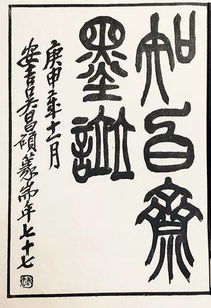 知白齋
墨譜
庚申年十一月
安吉吳昌碩篆耑年七十七